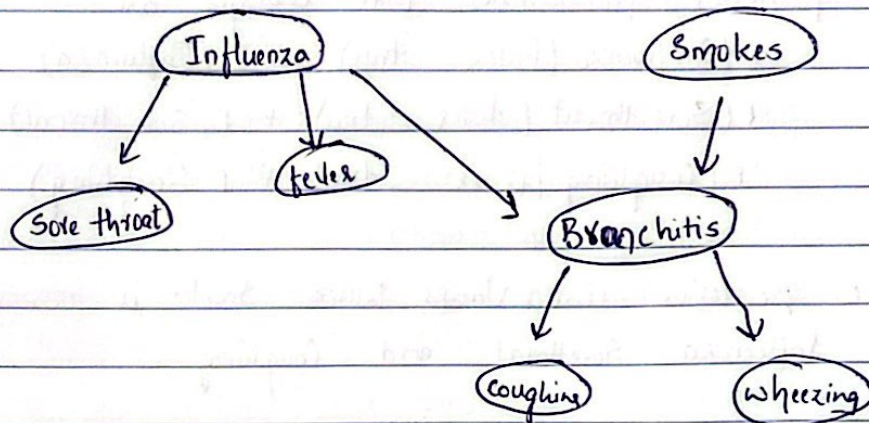 Influenza
Smokes
fever
Sore throat
Branchitis
coughing
wheezing